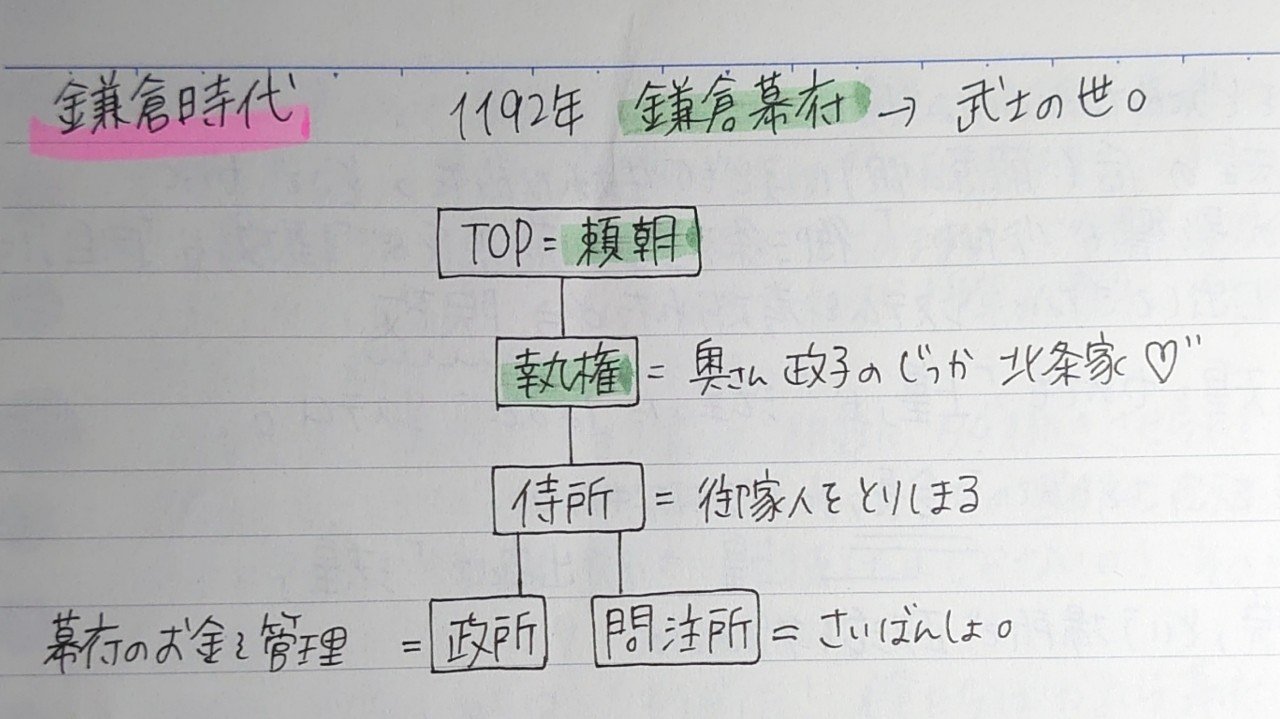 鎌倉時代 1192年 鎌倉幕府 → 武士の世。
TOP = 頼朝
執権 = 奥さん 政子のじっか 北条家♡"
侍所 = 御家人をとりしまる
幕府のお金を管理 = 政所 問注所 = さいばんしょ。